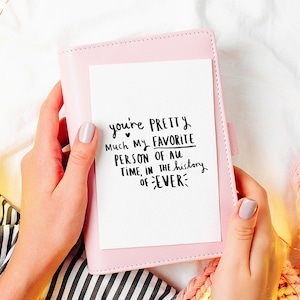 you're PRETTY
Much My FAVORITE
PERSON OF ALL
TIME, IN THE history
OF EVER